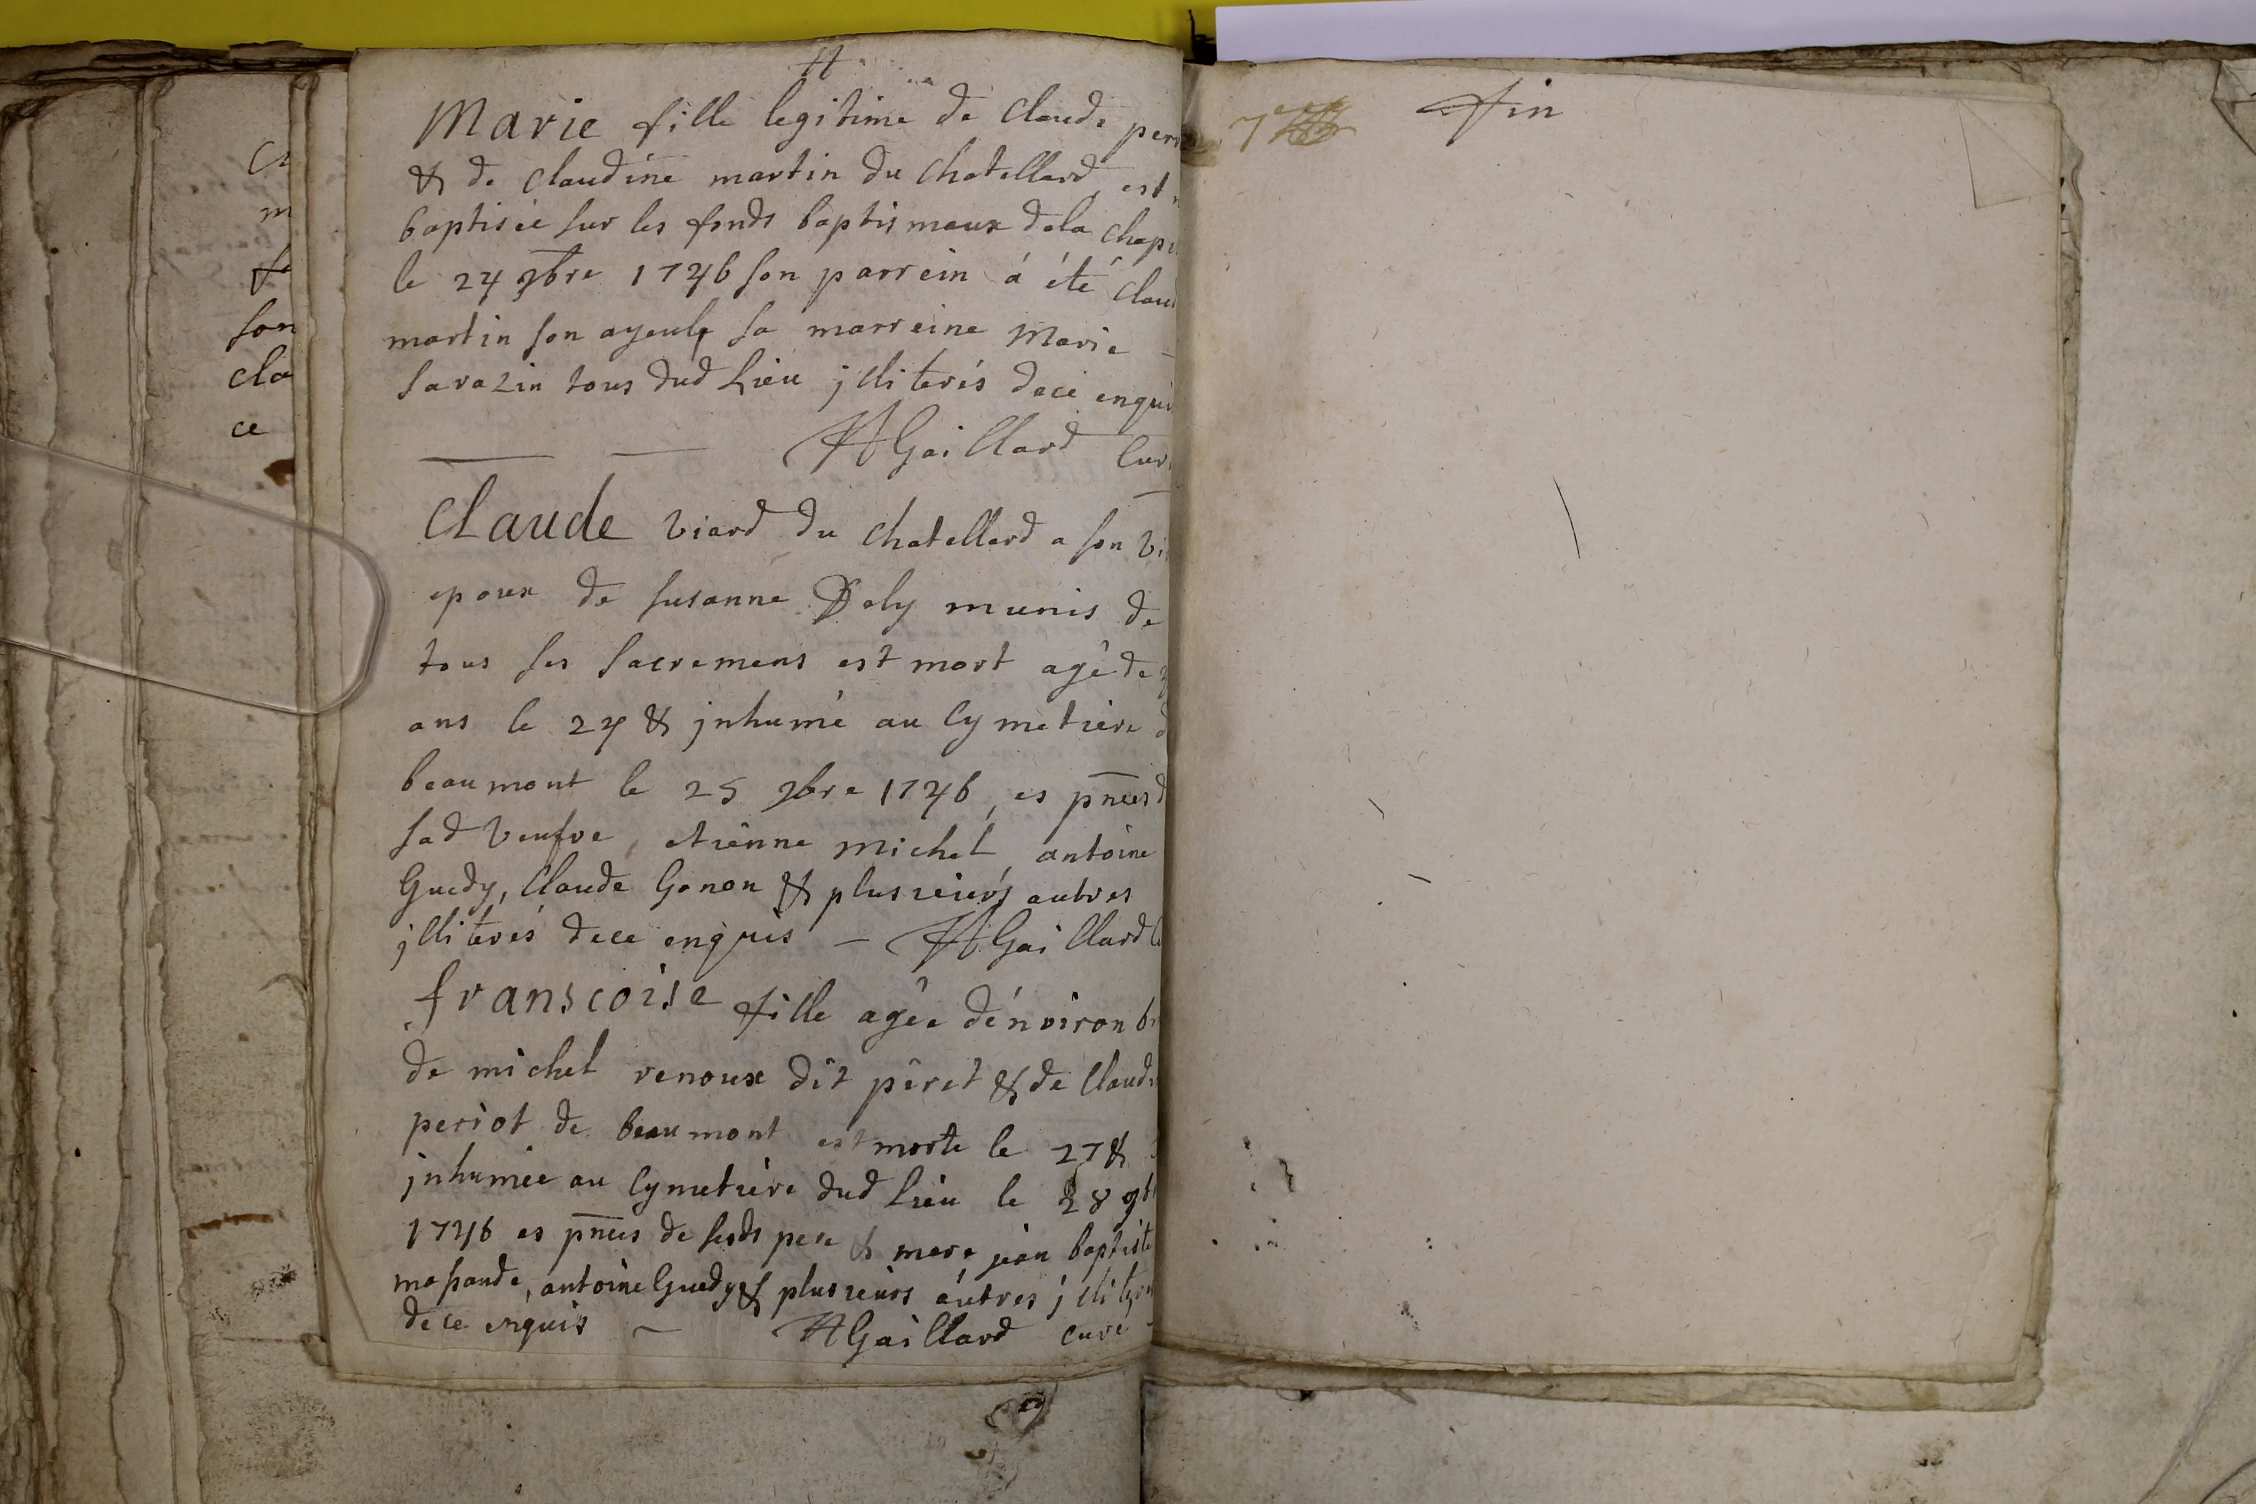 Marie fille legitime de Claude
& de claudine martin du chatellard, est
baptisée sur les fonds baptismaux dela
le 24 9bre 1746 son parrein á été
martin son ayeul, sa marreine Marie -
sarazin tous dud lieu jlliterés dece
HGaillard
Claude viard du chatellard a son
epoux de susanne Doly munis de
tous ses sacremens est mort agé de
ans le 24 & jnhumé au Cymetiere
beaumont le 25 9bre 1746, es pnces
sad veufve, etienne michel, antoine
Guedy, Claude Gonon & plusieurs autres
jlliterés dece enquis - HGaillard
franscoise fille agée dénviron
de michel renoux dit péret & de
periot de beaumont est morte le 27 &
jnhumée au Cymetiere dud lieu le 28
1746 es pnces de sesds pere & mere jean baptiste
antoine Guedy & plusieurs autres
dece enquis ~ HGaillard curé
fin
son
cla
ce